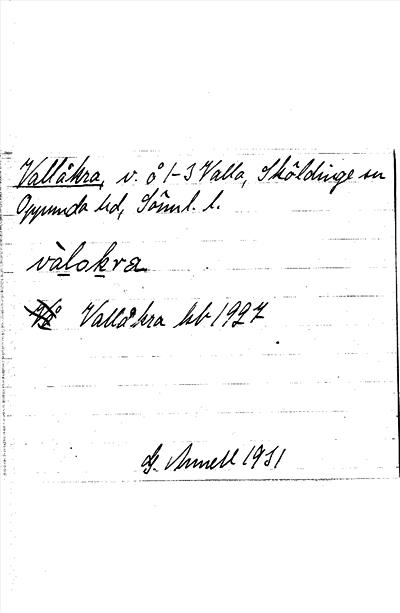 Vallåkra, v. å 1-3 Valla, Sköldinge sn
Oppunda hd, Söml. l.
vàlokra
Vallåkra kb 1927
G. Arnell 1931